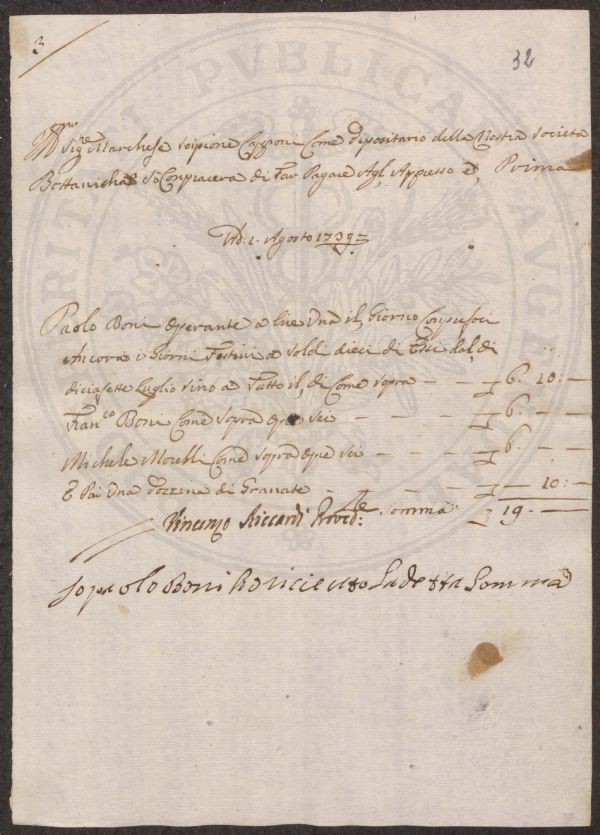 3
32
Sig.re Marchese Scipione Capponi Come Dipositario della Nostra Società
Bottanicha Si Conpiacerà di Far Pagare Agl, Appresso e, Prima
Ad: 1. Agosto 1739=
Paolo Boni Operante a lire Una il, Giorno Conpresoci
Ancora i Giorni Festivi a Soldi dieci di Essi dal, di
diciasette Luglio Sino a Tutto il, di Come Sopra — — £ 6. 10: —
Fran.co Boni Come Sopra Opre Sei — — — — £ 6. —
Michele Morelli Come Sopra Opre Sei — — — £ 6. —
E Più Una Dozzina di Granate — — £ — 10: —
Vincenzo Riccardi Proved.re Somma £ 19. —
Io paolo Boni ho ricieuto La detta Somma